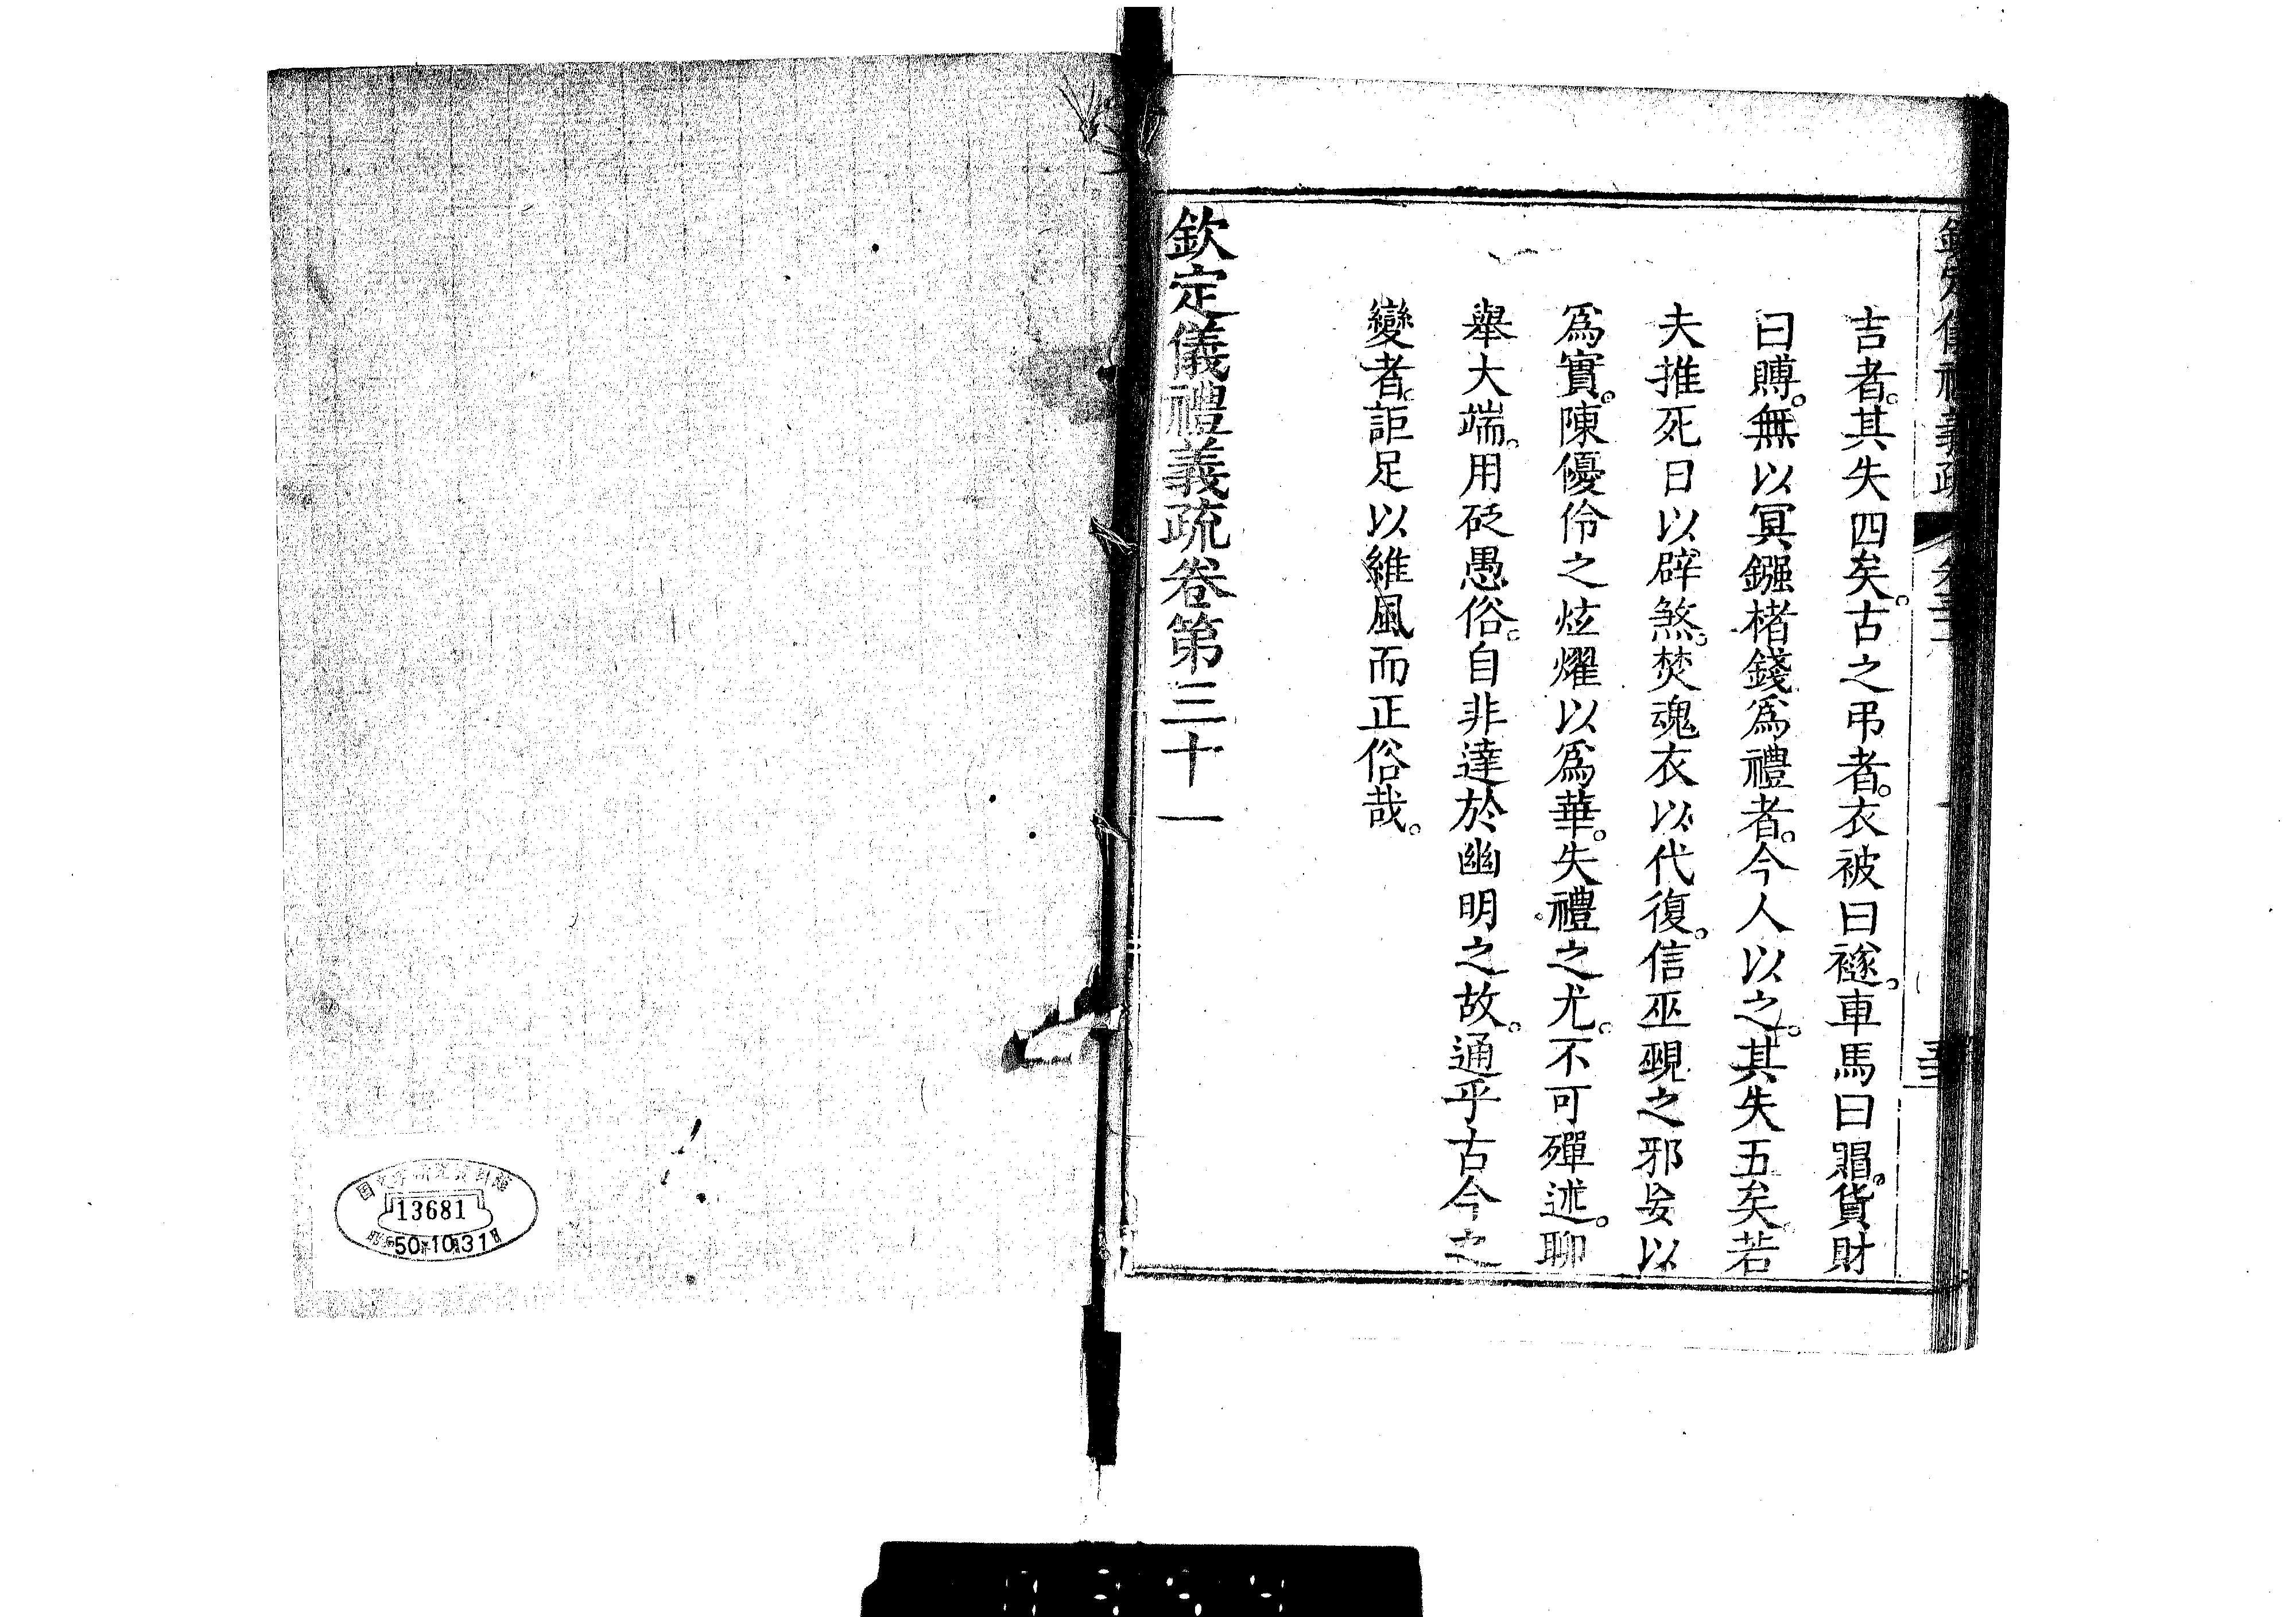 吉者。其失四矣。古之弔者。衣被曰襚。車馬曰賵。貨財
曰賻。無以冥鏹楮錢爲禮者。今人以之。其失五矣。若
夫推死日以辟煞。焚魂衣以代復。信巫覡之邪妄以
爲實。陳優伶之炫燿以爲華。失禮之尤。不可殫述。聊
舉大端。用砭愚俗。自非達於幽明之故。通乎古今之
變者。詎足以維風而正俗哉。
欽定儀禮義疏卷第三十一
13681
50 10 31